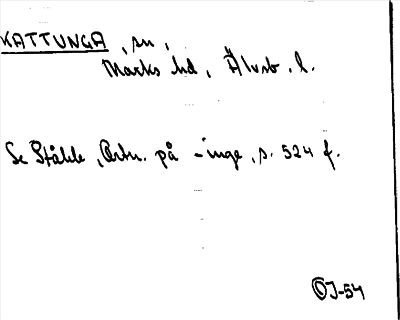 KATTUNGA, sn,
Marks hd, Älvsb. l.
Se Ståhle, Ortn. på -inge, s. 524 f.
OJ-54